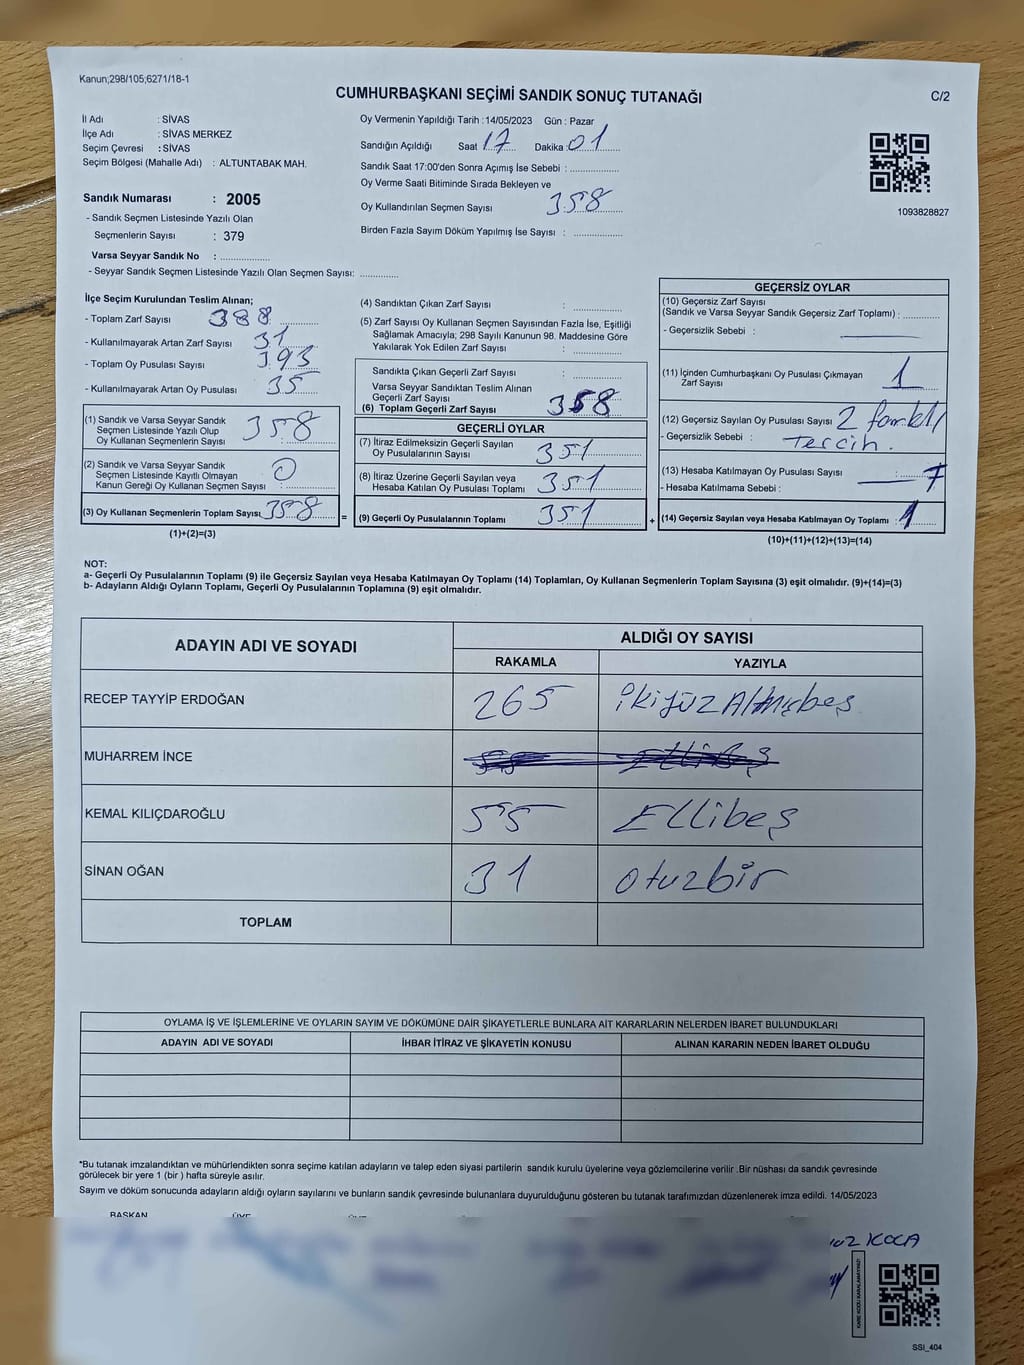 Kanun;298/105;6271/18-1
CUMHURBAŞKANI SEÇİMİ SANDIK SONUÇ TUTANAĞI
C/2
İl Adı : SİVAS
İlçe Adı : SİVAS MERKEZ
Seçim Çevresi : SİVAS
Seçim Bölgesi (Mahalle Adı) : ALTUNTABAK MAH.
Sandık Numarası : 2005
- Sandık Seçmen Listesinde Yazılı Olan
Seçmenlerin Sayısı : 379
Varsa Seyyar Sandık No :
- Seyyar Sandık Seçmen Listesinde Yazılı Olan Seçmen Sayısı:
Oy Vermenin Yapıldığı Tarih :14/05/2023 Gün : Pazar
Sandığın Açıldığı Saat 17 Dakika 01
Sandık Saat 17:00'den Sonra Açımış İse Sebebi :
Oy Verme Saati Bitiminde Sırada Bekleyen ve
Oy Kullandırılan Seçmen Sayısı 358
Birden Fazla Sayım Döküm Yapılmış İse Sayısı :
1093828827
İlçe Seçim Kurulundan Teslim Alınan;
- Toplam Zarf Sayısı 388
- Kullanılmayarak Artan Zarf Sayısı 31
- Toplam Oy Pusulası Sayısı 393
- Kullanılmayarak Artan Oy Pusulası 35
(1) Sandık ve Varsa Seyyar Sandık
Seçmen Listesinde Yazılı Olup
Oy Kullanan Seçmenlerin Sayısı : 358
(2) Sandık ve Varsa Seyyar Sandık
Seçmen Listesinde Kayıtlı Olmayan
Kanun Gereği Oy Kullanan Seçmen Sayısı : 0
(3) Oy Kullanan Seçmenlerin Toplam Sayısı 358
(1)+(2)=(3)
(4) Sandıktan Çıkan Zarf Sayısı :
(5) Zarf Sayısı Oy Kullanan Seçmen Sayısından Fazla İse, Eşitliği
Sağlamak Amacıyla; 298 Sayılı Kanunun 98. Maddesine Göre
Yakılarak Yok Edilen Zarf Sayısı :
Sandıkta Çıkan Geçerli Zarf Sayısı :
Varsa Seyyar Sandıktan Teslim Alınan
Geçerli Zarf Sayısı :
(6) Toplam Geçerli Zarf Sayısı 358
GEÇERLİ OYLAR
(7) İtiraz Edilmeksizin Geçerli Sayılan
Oy Pusulalarının Sayısı 351
(8) İtiraz Üzerine Geçerli Sayılan veya
Hesaba Katılan Oy Pusulası Toplamı 351
= (9) Geçerli Oy Pusulalarının Toplamı 351
GEÇERSİZ OYLAR
(10) Geçersiz Zarf Sayısı
(Sandık ve Varsa Seyyar Sandık Geçersiz Zarf Toplamı) :
- Geçersizlik Sebebi :
(11) İçinden Cumhurbaşkanı Oy Pusulası Çıkmayan
Zarf Sayısı 1
(12) Geçersiz Sayılan Oy Pusulası Sayısı 2 farklı
- Geçersizlik Sebebi : tercih.
(13) Hesaba Katılmayan Oy Pusulası Sayısı : 7
- Hesaba Katılmama Sebebi :
+ (14) Geçersiz Sayılan veya Hesaba Katılmayan Oy Toplamı :
(10)+(11)+(12)+(13)=(14)
NOT:
a- Geçerli Oy Pusulalarının Toplamı (9) ile Geçersiz Sayılan veya Hesaba Katılmayan Oy Toplamı (14) Toplamları, Oy Kullanan Seçmenlerin Toplam Sayısına (3) eşit olmalıdır. (9)+(14)=(3)
b- Adayların Aldığı Oyların Toplamı, Geçerli Oy Pusulalarının Toplamına (9) eşit olmalıdır.
ADAYIN ADI VE SOYADI
ALDIĞI OY SAYISI
RAKAMLA YAZIYLA
RECEP TAYYİP ERDOĞAN 265 ikiyüzAltmışbeş
MUHARREM İNCE
KEMAL KILIÇDAROĞLU 55 Ellibeş
SİNAN OĞAN 31 otuzbir
TOPLAM
OYLAMA İŞ VE İŞLEMLERİNE VE OYLARIN SAYIM VE DÖKÜMÜNE DAİR ŞİKAYETLERLE BUNLARA AİT KARARLARIN NELERDEN İBARET BULUNDUKLARI
ADAYIN ADI VE SOYADI İHBAR İTİRAZ VE ŞİKAYETİN KONUSU ALINAN KARARIN NEDEN İBARET OLDUĞU
*Bu tutanak imzalandıktan ve mühürlendikten sonra seçime katılan adayların ve talep eden siyasi partilerin sandık kurulu üyelerine veya gözlemcilerine verilir .Bir nüshası da sandık çevresinde
görülecek bir yere 1 (bir ) hafta süreyle asılır.
Sayım ve döküm sonucunda adayların aldığı oyların sayılarını ve bunların sandık çevresinde bulunanlara duyurulduğunu gösteren bu tutanak tarafımızdan düzenlenerek imza edildi. 14/05/2023
BAŞKAN ÜYE
KOCA
KARE KODU KARALAMAYINIZ!
SSI_404